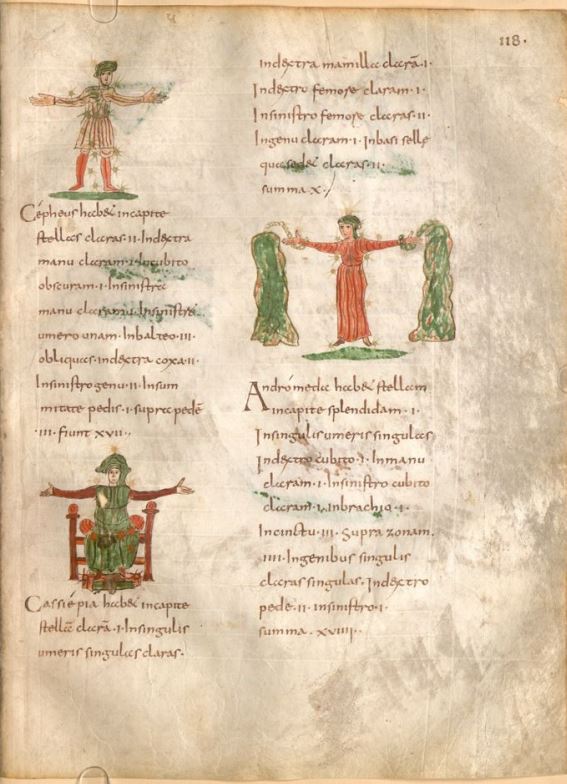 118.
Cépheus habet incapite
stellas claras·ii·Indextra
manu claram·i·Incubito
obscuram·i·Insinistra
manu claram·i·Insinistro
umero unam·Inbalteo·iii·
obliquas·indextra coxa·ii·
Insinistro genu·ii·Insum
mitate pedis·i·supra pedē
·iii·fiunt xvii·
Cassiépia habet incapite
stellā clarā·i·Insingulis
umeris singulas claras·
Indextra mamilla clarā·i·
Indextro femore claram·i·
Insinistro femore claras·ii·
Ingenu claram·i·Inbasi selle
qua sedet claras·ii·
summa x·
Andrómeda habet stellam
incapite splendidam·i·
Insingulis umeris singulas
Indextro cubito·i·Inmanu
claram·i·Insinistro cubito
claram·i·Inbrachio·i·
Incinctu·iii·Supra zonam·
iiii·Ingenibus singulis
claras singulas·Indextro
pede·ii·insinistro·i·
summa·xviiii·